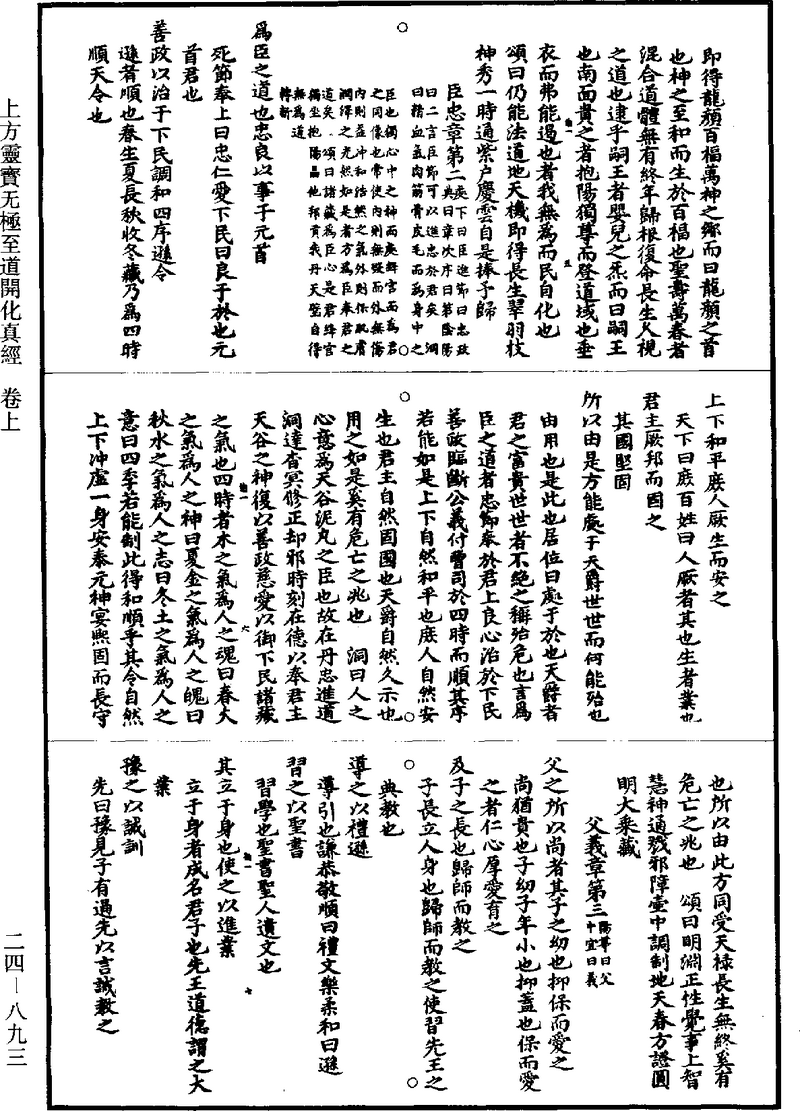 上方靈寶无極至道開化真經　卷上
二四—八九三
即得龍顏百福萬神之鄉而曰龍顏之首
也神之至和而生於百福也聖壽萬春者
混合道體無有終年歸根復命長生久視
之道也逮乎嗣王者嬰兒之炁而曰嗣王
也南面貴之者抱陽獨尊而登道域也垂
衣而弗能過也者我無為而民自化也
頌曰仍能法道地天機即得長生翠羽枝
神秀一時通紫户慶雲自是捧予歸
臣忠章第二
為臣之道也忠良以事于元首
死節奉上曰忠仁愛下民曰良于於也元
首君也
善政以治于下民調和四序遜令
遜者順也春生夏長秋收冬藏乃為四時
順天令也
上下和平庶人厥生而安之
天下曰庶百姓曰人厥者其也生者業也
君主厥邦而固之
其國堅固
所以由是方能處于天爵世世而何能殆也
由用也是此也居位曰處于於也天爵者
君之富貴世世者不絕之稱殆危也言為
臣之道者忠節奉於君上良心治於下民
善政臨斷公義付曹司於四時而順其序
若能如是上下自然和平也庶人自然安
生也君主自然固國也天爵自然久示也
用之如是奚有危亡之兆也　洞曰人之
心意為天谷泥丸之臣也故在丹忠進道
洞達杳冥修正却邪時刻在德以奉君主
天谷之神復以善政慈愛以御下民諸藏
之氣也四時者木之氣為人之魂曰春火
之氣為人之神曰夏金之氣為人之魄曰
秋水之氣為人之志曰冬土之氣為人之
意曰四季若能制此得和順乎其令自然
上下冲虛一身安泰元神宴熙固而長守
也所以由此方同受天祿長生無終奚有
危亡之兆也　頌曰明淵正性覺事上智
慧神通戮邪障壺中調制地天春方證圓
明大乘藏
父義章第三
父之所以尚者其子之幼也抑保而愛之
尚猶貴也子幼子年小也抑蓋也保而愛
之者仁心厚愛育之
及子之長也歸師而教之
子長立人身也歸師而教之使習先王之
典教也
導之以禮遜
導引也謙恭敬順曰禮文樂柔和曰遜
習之以聖書
習學也聖書聖人遺文也
其立于身也使之以進業
立于身者成名君子也先王道德謂之大
業
豫之以誡訓
先曰豫見子有過先以言誡教之